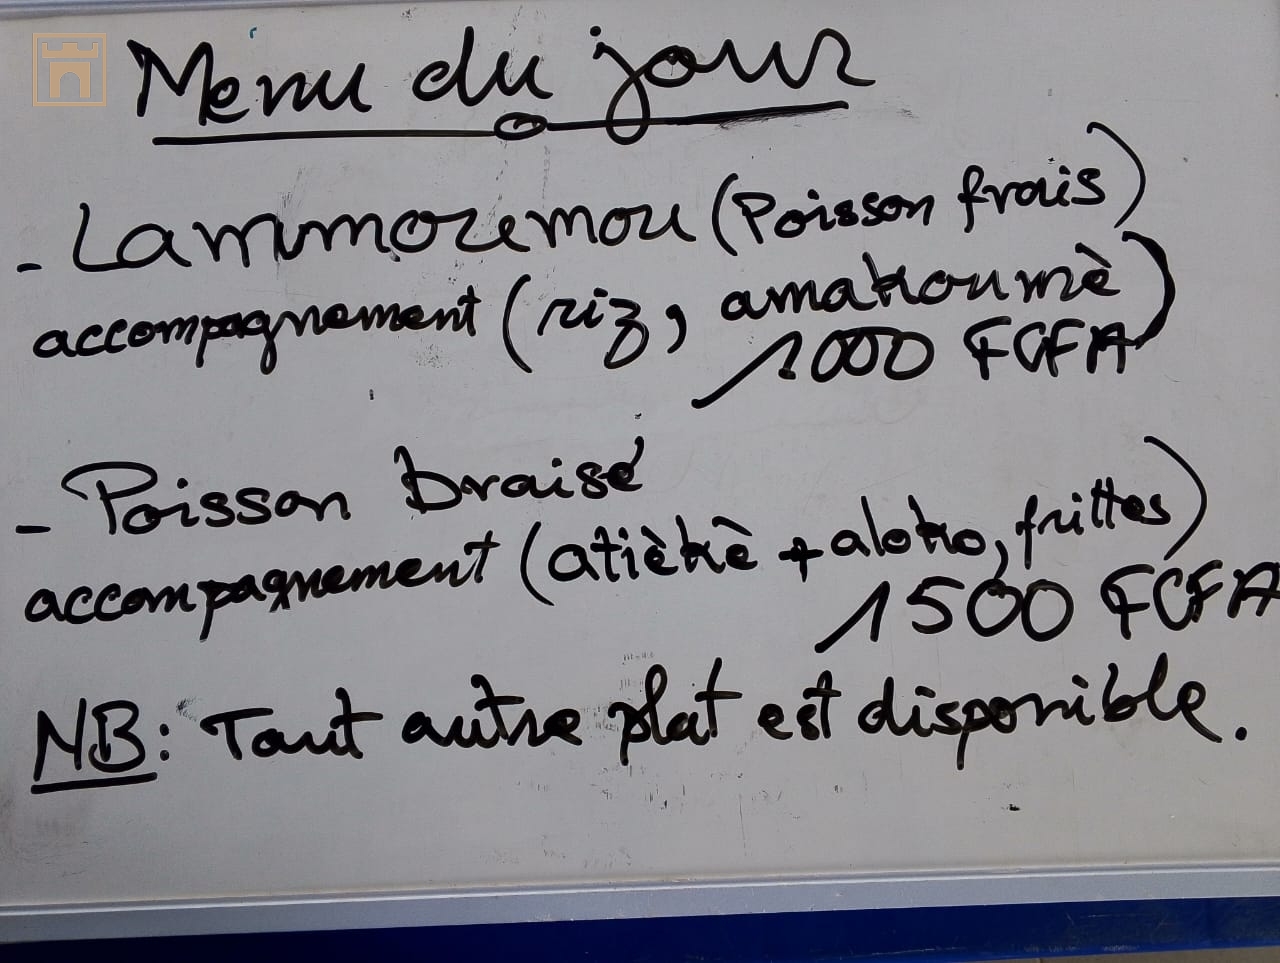 Menu du jour
- Lammoremou (Poisson frais)
accompagnement (riz, amakoumè)
1000 FCFA
- Poisson braisé
accompagnement (atièkè + aloko, frittes)
1500 FCFA
NB: Tout autre plat est disponible.